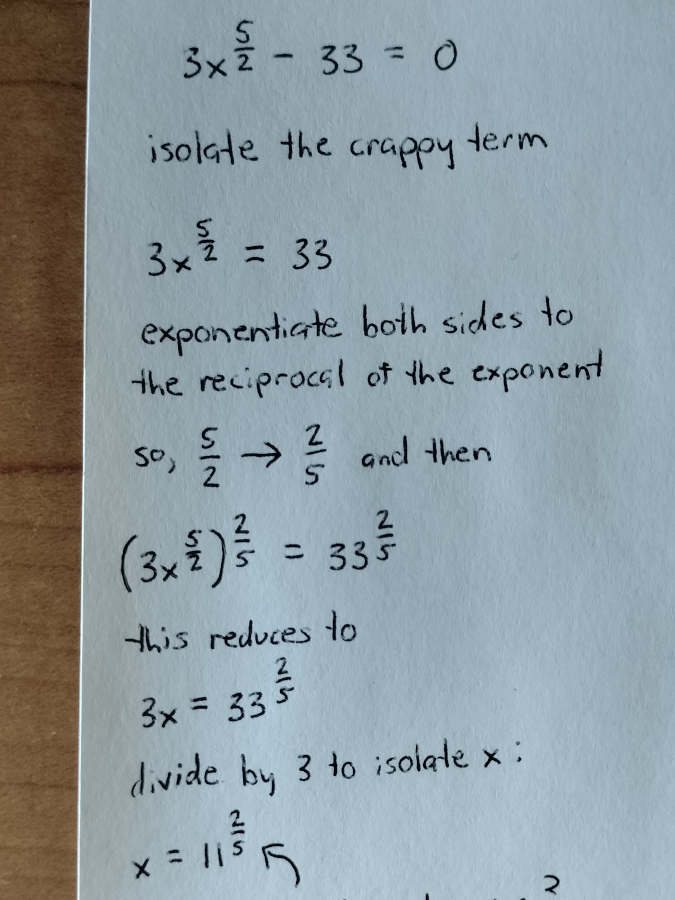 3x^(5/2) - 33 = 0
isolate the crappy term
3x^(5/2) = 33
exponentiate both sides to
the reciprocal of the exponent
so, 5/2 → 2/5 and then
(3x^(5/2))^(2/5) = 33^(2/5)
this reduces to
3x = 33^(2/5)
divide by 3 to isolate x:
x = 11^(2/5)